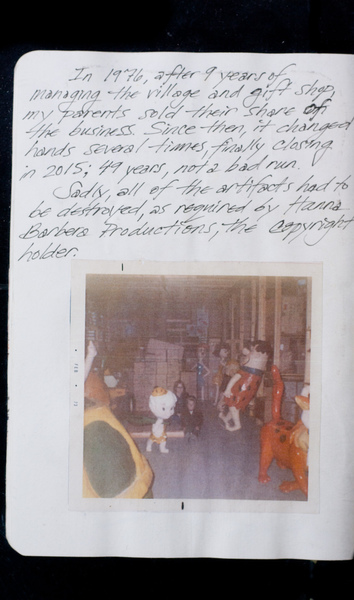 In 1976, after 9 years of
managing the village and gift shop,
my parents sold their share of
the business. Since then, it changed
hands several times, finally closing
in 2015; 49 years, not a bad run.
Sadly, all of the artifacts had to
be destroyed, as required by Hanna
Barbera Productions, the copyright
holder.